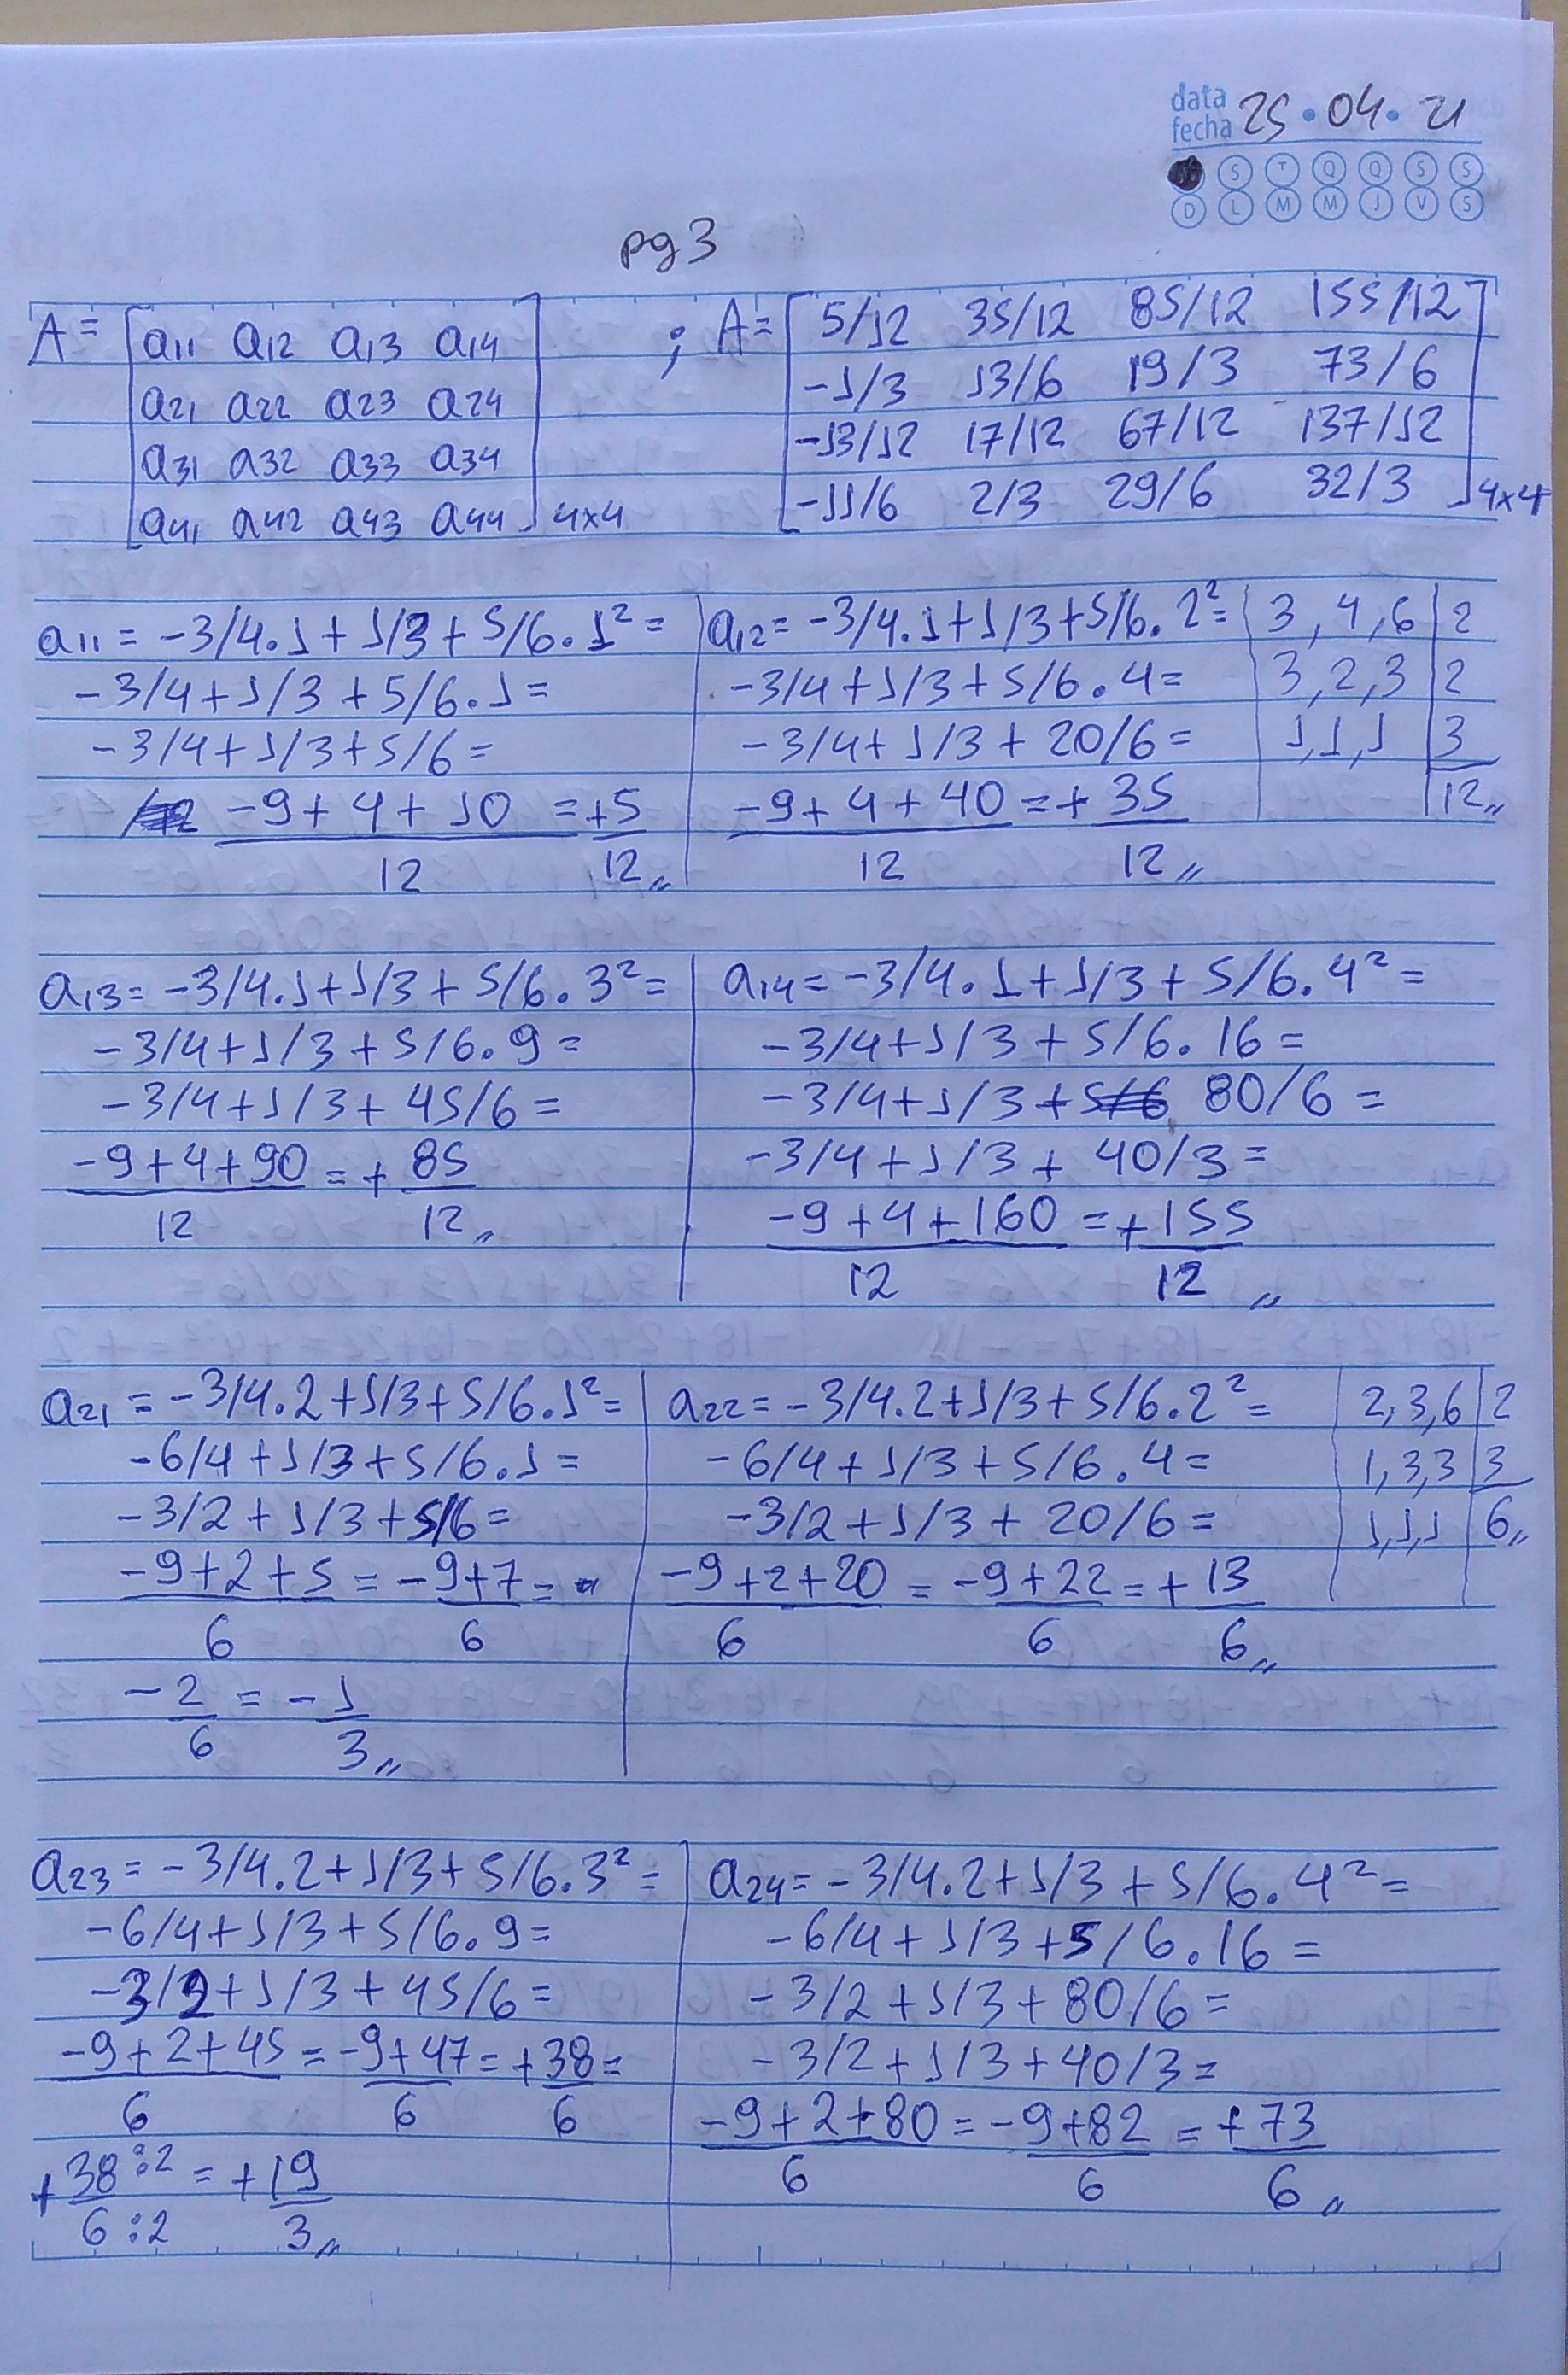 data
fecha 25 • 04 • 21
S T Q Q S S
D L M M J V S
pg 3
A = [a11 a12 a13 a14 ; A = [5/12 35/12 85/12 155/12]
a21 a22 a23 a24 -1/3 13/6 19/3 73/6
a31 a32 a33 a34 -13/12 17/12 67/12 137/12
a41 a42 a43 a44] 4x4 -11/6 2/3 29/6 32/3] 4x4
a11 = -3/4.1+1/3+5/6.1² =
-3/4+1/3+5/6.1=
-3/4+1/3+5/6=
-9+4+10 = +5
12 12,,
a12 = -3/4.1+1/3+5/6.2² =
-3/4+1/3+5/6.4=
-3/4+1/3+20/6=
-9+4+40 = + 35
12 12,,
3,4,6|2
3,2,3|2
1,1,1|3
12,,
a13 = -3/4.1+1/3+5/6.3² =
-3/4+1/3+5/6.9=
-3/4+1/3+45/6=
-9+4+90 = + 85
12 12,,
a14 = -3/4.1+1/3+5/6.4² =
-3/4+1/3+5/6.16=
-3/4+1/3+5/6 80/6=
-3/4+1/3+40/3=
-9+4+160 = +155
12 12,,
a21 = -3/4.2+1/3+5/6.1² =
-6/4+1/3+5/6.1=
-3/2+1/3+5/6=
-9+2+5 = -9+7 = -
6 6
-2 = -1
6 3,,
a22 = -3/4.2+1/3+5/6.2² =
-6/4+1/3+5/6.4=
-3/2+1/3+20/6=
-9+2+20 = -9+22 = + 13
6 6 6,,
2,3,6|2
1,3,3|3
1,1,1|6,,
a23 = -3/4.2+1/3+5/6.3² =
-6/4+1/3+5/6.9=
-3/2+1/3+45/6=
-9+2+45 = -9+47 = +38 =
6 6 6
+38:2 = +19
6:2 3,,
a24 = -3/4.2+1/3+5/6.4² =
-6/4+1/3+5/6.16=
-3/2+1/3+80/6=
-3/2+1/3+40/3=
-9+2+80 = -9+82 = +73
6 6 6,,